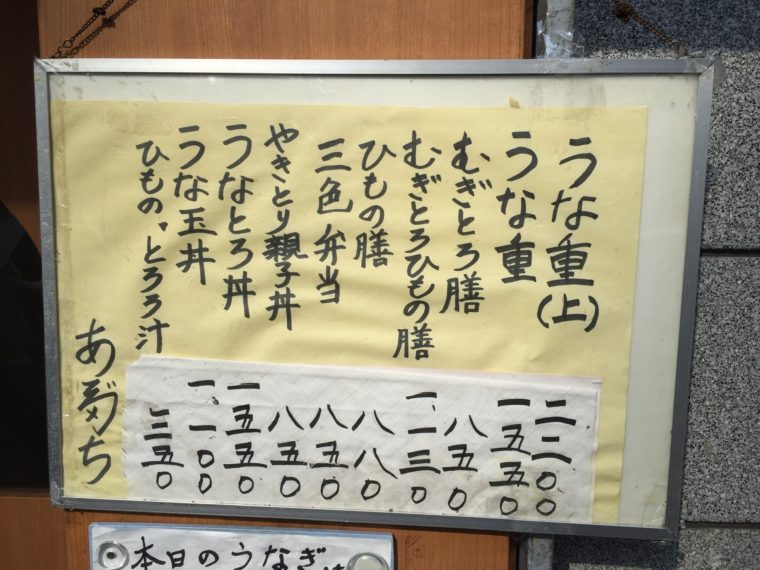 うな重(上)
うな重
むぎとろ膳
むぎとろひもの膳
ひもの膳
三色弁当
やきとり親子丼
うなとろ丼
うな玉丼
ひもの、とろろ汁
二二〇〇
一五五〇
八五〇
一一三〇
八八〇
八五〇
八五〇
一五五〇
一一〇〇
三五〇
本日のうなぎ